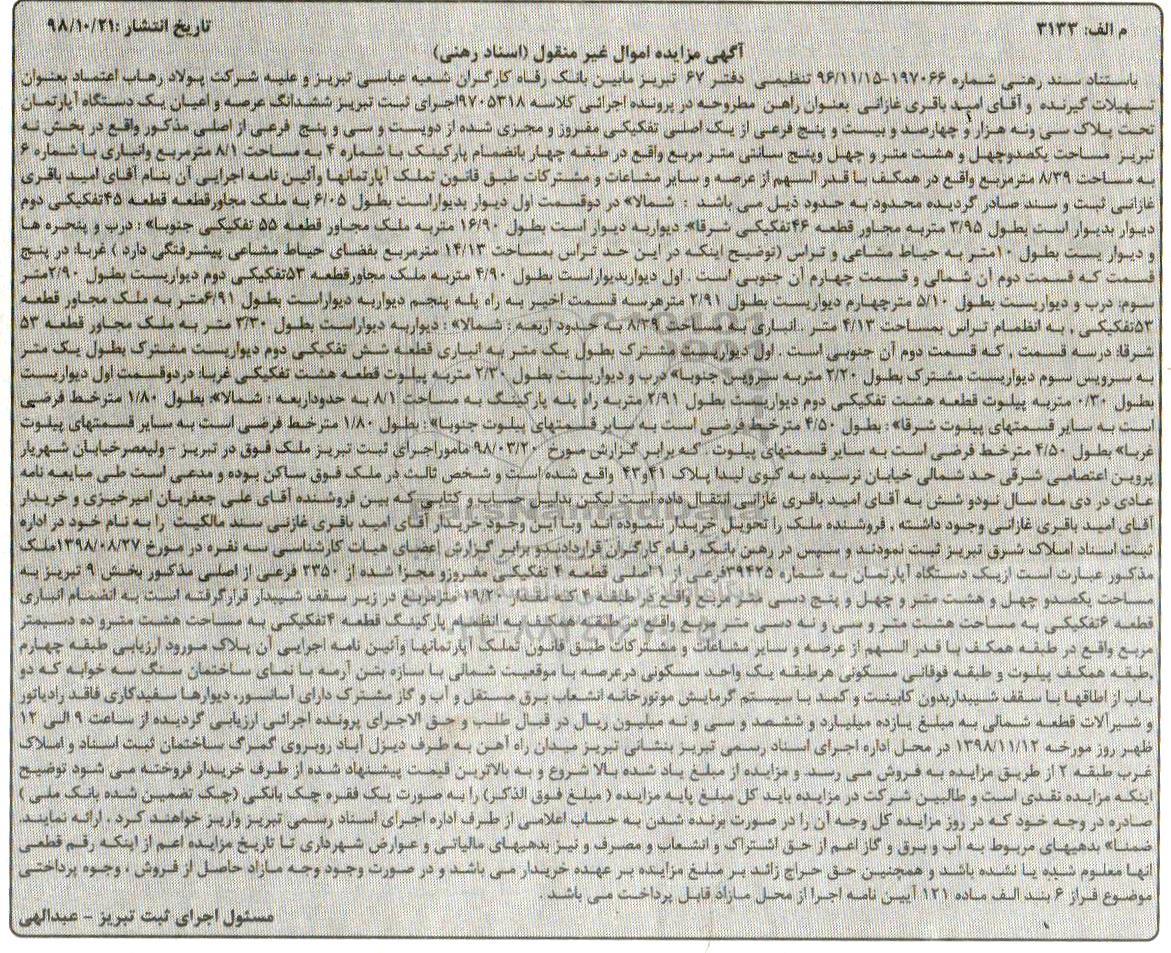 م الف: ۳۱۳۳
تاریخ انتشار :۹۸/۱۰/۲۱
آگهی مزایده اموال غیر منقول (اسناد رهنی)
باستناد سند رهنی شماره ۱۹۷۰۶۶-۹۶/۱۱/۱۵ تنظیمی دفتر ۶۷ تبریز مابین بانک رفاه کارگران شعبه عباسی تبریز و علیه شرکت پولاد رهاب اعتماد بعنوان
تسهیلات گیرنده و آقای امید باقری غازانی بعنوان راهن مطروحه در پرونده اجرائی کلاسه ۹۷۰۵۳۱۸اجرای ثبت تبریز ششدانگ عرصه و اعیان یک دستگاه آپارتمان
تحت پلاک سی ونه هزار و چهارصد و بیست و پنج فرعی از یک اصلی تفکیکی مفروز و مجزی شده از دویست و سی و پنج فرعی از اصلی مذکور واقع در بخش نه
تبریز مساحت یکصدوچهل و هشت متر و چهل وپنج سانتی متر مربع واقع در طبقه چهار بانضمام پارکینک با شماره ۴ به مساحت ۸/۱ مترمربع وانباری با شماره ۶
به مساحت ۸/۳۹ مترمربع واقع در همکف با قدر السهم از عرصه و سایر مشاعات و مشترکات طبق قانون تملک آپارتمانها وآئین نامه اجرایی آن بنام آقای امید باقری
غازانی ثبت و سند صادر گردیده محدود به حدود ذیل می باشد : شمالا» در دوقسمت اول دیوار بدیواراست بطول ۶/۰۵ به ملک مجاورقطعه قطعه ۴۵تفکیکی دوم
دیوار بدیوار است بطول ۳/۹۵ متربه مجاور قطعه ۴۶تفکیکی شرقا» دیواربه دیوار است بطول ۱۶/۹۰ متربه ملک مجاور قطعه ۵۵ تفکیکی جنوبا» : درب و پنجره ها
و دیوار یست بطول ۱۰متر به حیاط مشاعی و تراس (توضیح اینکه در این حد تراس بمساحت ۱۴/۱۳ مترمربع بفضای حیاط مشاعی پیشرفتگی دارد ) غربا: در پنج
قسمت که قسمت دوم آن شمالی و قسمت چهارم آن جنوبی است . اول دیواربدیواراست بطول ۴/۹۰ متربه ملک مجاورقطعه ۵۳تفکیکی دوم دیواریست بطول ۲/۹۰متر
سوم: درب و دیواریست بطول ۵/۱۰ مترچهارم دیواریست بطول ۲/۹۱ مترهرسه قسمت اخیر به راه پله پنجم دیواربه دیواراست بطول ۶/۹۱متر به ملک مجاور قطعه
۵۳تفکیکی , به انظمام تراس بمساحت ۴/۱۳ متر . انباری به مساحت ۸/۳۹ به حدود اربعه : شمالا» : دیواربه دیواراست بطول ۳/۳۰ متر به ملک مجاور قطعه ۵۳
شرقا: درسه قسمت , که قسمت دوم آن جنوبی است . اول دیواریست مشترک بطول یک متر به انباری قطعه شش تفکیکی دوم دیواریست مشترک بطول یک متر
به سرویس سوم دیواریست مشترک بطول ۲/۲۰ متربه سرویس جنوبا» درب و دیواریست بطول ۲/۳۰ متربه پیلوت قطعه هشت تفکیکی غربا: دردوقسمت اول دیواریست
بطول ۰/۳۰ متربه پیلوت قطعه هشت تفکیکی دوم دیواریست بطول ۲/۹۱ متربه راه پله پارکینگ به مساحت ۸/۱ به حدوداربعه : شمالا»: بطول ۱/۸۰ مترخط فرضی
است به سایر قسمتهای پیلوت شرقا» : بطول ۴/۵۰ مترخط فرضی است به سایر قسمتهای پیلوت جنوبا» : بطول ۱/۸۰ مترخط فرضی است به سایر قسمتهای پیلوت
غربا» بطول ۴/۵۰ مترخط فرضی است به سایر قسمتهای پیلوت . که برابر گزارش مورخ ۹۸/۰۳/۲۰ ماموراجرای ثبت تبریز ملک فوق در تبریز - ولیعصرخیابان شهریار
پروین اعتصامی شرقی حد شمالی خیابان نرسیده به کوی لیدا پلاک ۴۱و۴۳ واقع شده است و شخص ثالث در ملک فوق ساکن بوده و مدعی است طی مبایعه نامه
عادی در دی ماه سال نودو شش به آقای امید باقری غازانی انتقال داده است لیکن بدلیل حساب و کتابی که بین فروشنده آقای علی جعفریان امیرخیزی و خریدار
آقای امید باقری غازانی وجود داشته , فروشنده ملک را تحویل خریدار ننموده اند وبا این وجود خریدار آقای امید باقری غازنی سند مالکیت را به نام خود در اداره
ثبت اسناد املاک شرق تبریز ثبت نمودند و سپس در رهن بانک رفاه کارگران قراردادندو برابر گزارش اعضای هیات کارشناسی سه نفره در مورخ ۱۳۹۸/۰۸/۲۷ملک
مذکور عبارت است ازیک دستگاه آپارتمان به شماره ۳۹۴۲۵فرعی از ۱ اصلی قطعه ۴ تفکیکی مفروزو مجزا شده از ۲۳۵۰ فرعی از اصلی مذکور بخش ۹ تبریز به
مساحت یکصدو چهل و هشت متر و چهل و پنج دسی متر مربع واقع در طبقه ۴ که مقدار ۱۹/۲۰ مترمربع در زیر سقف شیبدار قرارگرفته است به انضمام انباری
قطعه ۶تفکیکی به مساحت هشت متر و سی و نه دسی متر مربع واقع در طبقه همکف به انظمام پارکینگ قطعه ۴تفکیکی به مساحت هشت مترو ده دسیمتر
مربع واقع در طبقه همکف با قدر السهم از عرصه و سایر مشاعات و مشترکات طبق قانون تملک آپارتمانها وآئین نامه اجرایی آن پلاک موورود ارزیابی طبقه چهارم
,طبقه همکف پیلوت و طبقه فوقانی مسکونی هرطبقه یک واحد مسکونی درعرصه با موقعیت شمالی با سازه بتن آرمه با نمای ساختمان سنگ سه خوابه که دو
باب از اطاقها با سقف شیبداربدون کابینت و کمد با سیستم گرمایش موتورخانه انشعاب برق مستقل و آب و گاز مشترک دارای آسانسور، دیوارها سفیدکاری فاقد رادیاتور
و شیرآلات قطعه شمالی به مبلغ یازده میلیارد و ششصد و سی و نه میلیون ریال در قبال طلب و حق الاجرای پرونده اجرائی ارزیابی گردیده از ساعت ۹ الی ۱۲
ظهر روز مورخه ۱۳۹۸/۱۱/۱۲ در محل اداره اجرای اسناد رسمی تبریز بنشانی تبریز میدان راه آهن به طرف دیزل آباد روبروی گمرگ ساختمان ثبت اسناد و املاک
غرب طبقه ۲ از طریق مزایده به فروش می رسد. و مزایده از مبلغ یاد شده بالا شروع و به بالاترین قیمت پیشنهاد شده از طرف خریدار فروخته می شود توضیح
اینکه مزایده نقدی است و طالبین شرکت در مزایده باید کل مبلغ پایه مزایده ( مبلغ فوق الذکر) را به صورت یک فقره چک بانکی (چک تضمین شده بانک ملی )
صادره در وجه خود که در روز مزایده کل وجه آن را در صورت برنده شدن به حساب اعلامی از طرف اداره اجرای اسناد رسمی تبریز واریز خواهند کرد , ارائه نمایند.
ضمنا» بدهیهای مربوط به آب و برق و گاز اعم از حق اشتراک و انشعاب و مصرف و نیز بدهیهای مالیاتی و عوارض شهرداری تا تاریخ مزایده اعم از اینکه رقم قطعی
آنها معلوم شده یا نشده باشد و همچنین حق حراج زائد بر مبلغ مزایده بر عهده خریدار می باشد و در صورت وجود وجه مازاد حاصل از فروش , وجوه پرداختی
موضوع فراز ۶ بند الف ماده ۱۲۱ آیین نامه اجرا از محل مازاد قابل پرداخت می باشد .
مسئول اجرای ثبت تبریز - عبدالهی